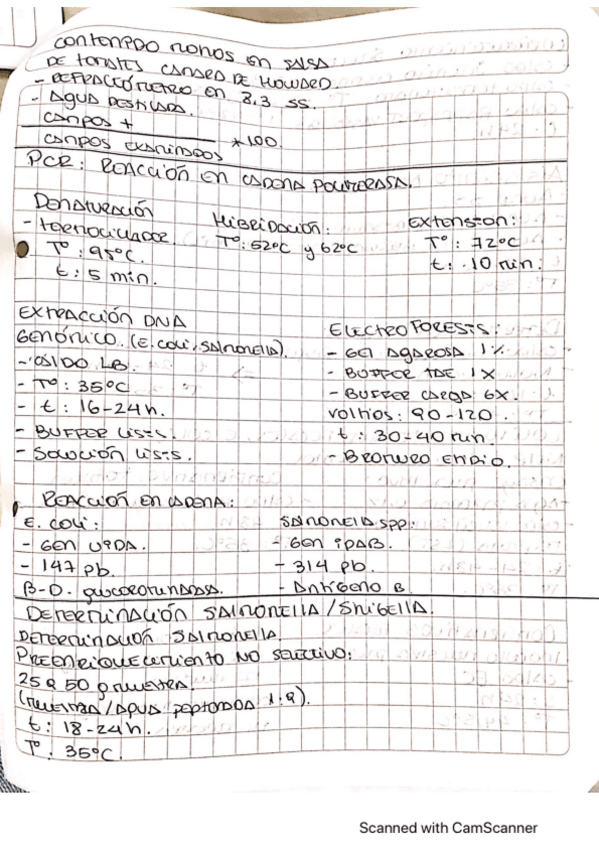 CONTENIDO MOHOS EN SALSA
DE TOMATES CAMARA DE HOWARD.
- REFRACCIÓMETRO en 8,3 SS.
- AGUA DESTILADA.
CAMPOS +
CAMPOS EXAMINADOS * 100.
PCR: REACCIÓN EN CADENA POLIMERASA.
DENATURACIÓN
- TERMOCICLADOR.
T°: 95°C.
t: 5 min.
HIBRIDACIÓN:
T°: 52°C y 62°C
EXTENSION:
T°: 72°C
t: 10 min.
EXTRACCIÓN DNA
GENÓMICO. (E. coli, SALMONELLA).
- CALDO LB.
- T°: 35°C.
- t: 16-24h.
- BUFFER LISIS.
- SOLUCIÓN LISIS.
ELECTROFORESIS:
- GEL AGAROSA 1%
- BUFFER TAE 1X
- BUFFER CARGA 6X.
VOLTIOS: 90-120.
t: 30-40 min.
- BROMURO ETIDIO.
REACCIÓN EN CADENA:
E. coli:
- GEN UIDA.
- 147 pb.
B-D. GLUCORONIDASA.
SALMONELLA SPP:
- GEN IPAB.
- 314 pb.
- ANTÍGENO B
DETERMINACIÓN SALMONELLA / SHIGELLA.
DETERMINACIÓN SALMONELLA.
PREENRIQUECIMIENTO NO SELECTIVO:
25 a 50 g MUESTRA.
(MUESTRA / AGUA PEPTONADA 1:9).
t: 18-24h.
T°: 35°C.
Scanned with CamScanner